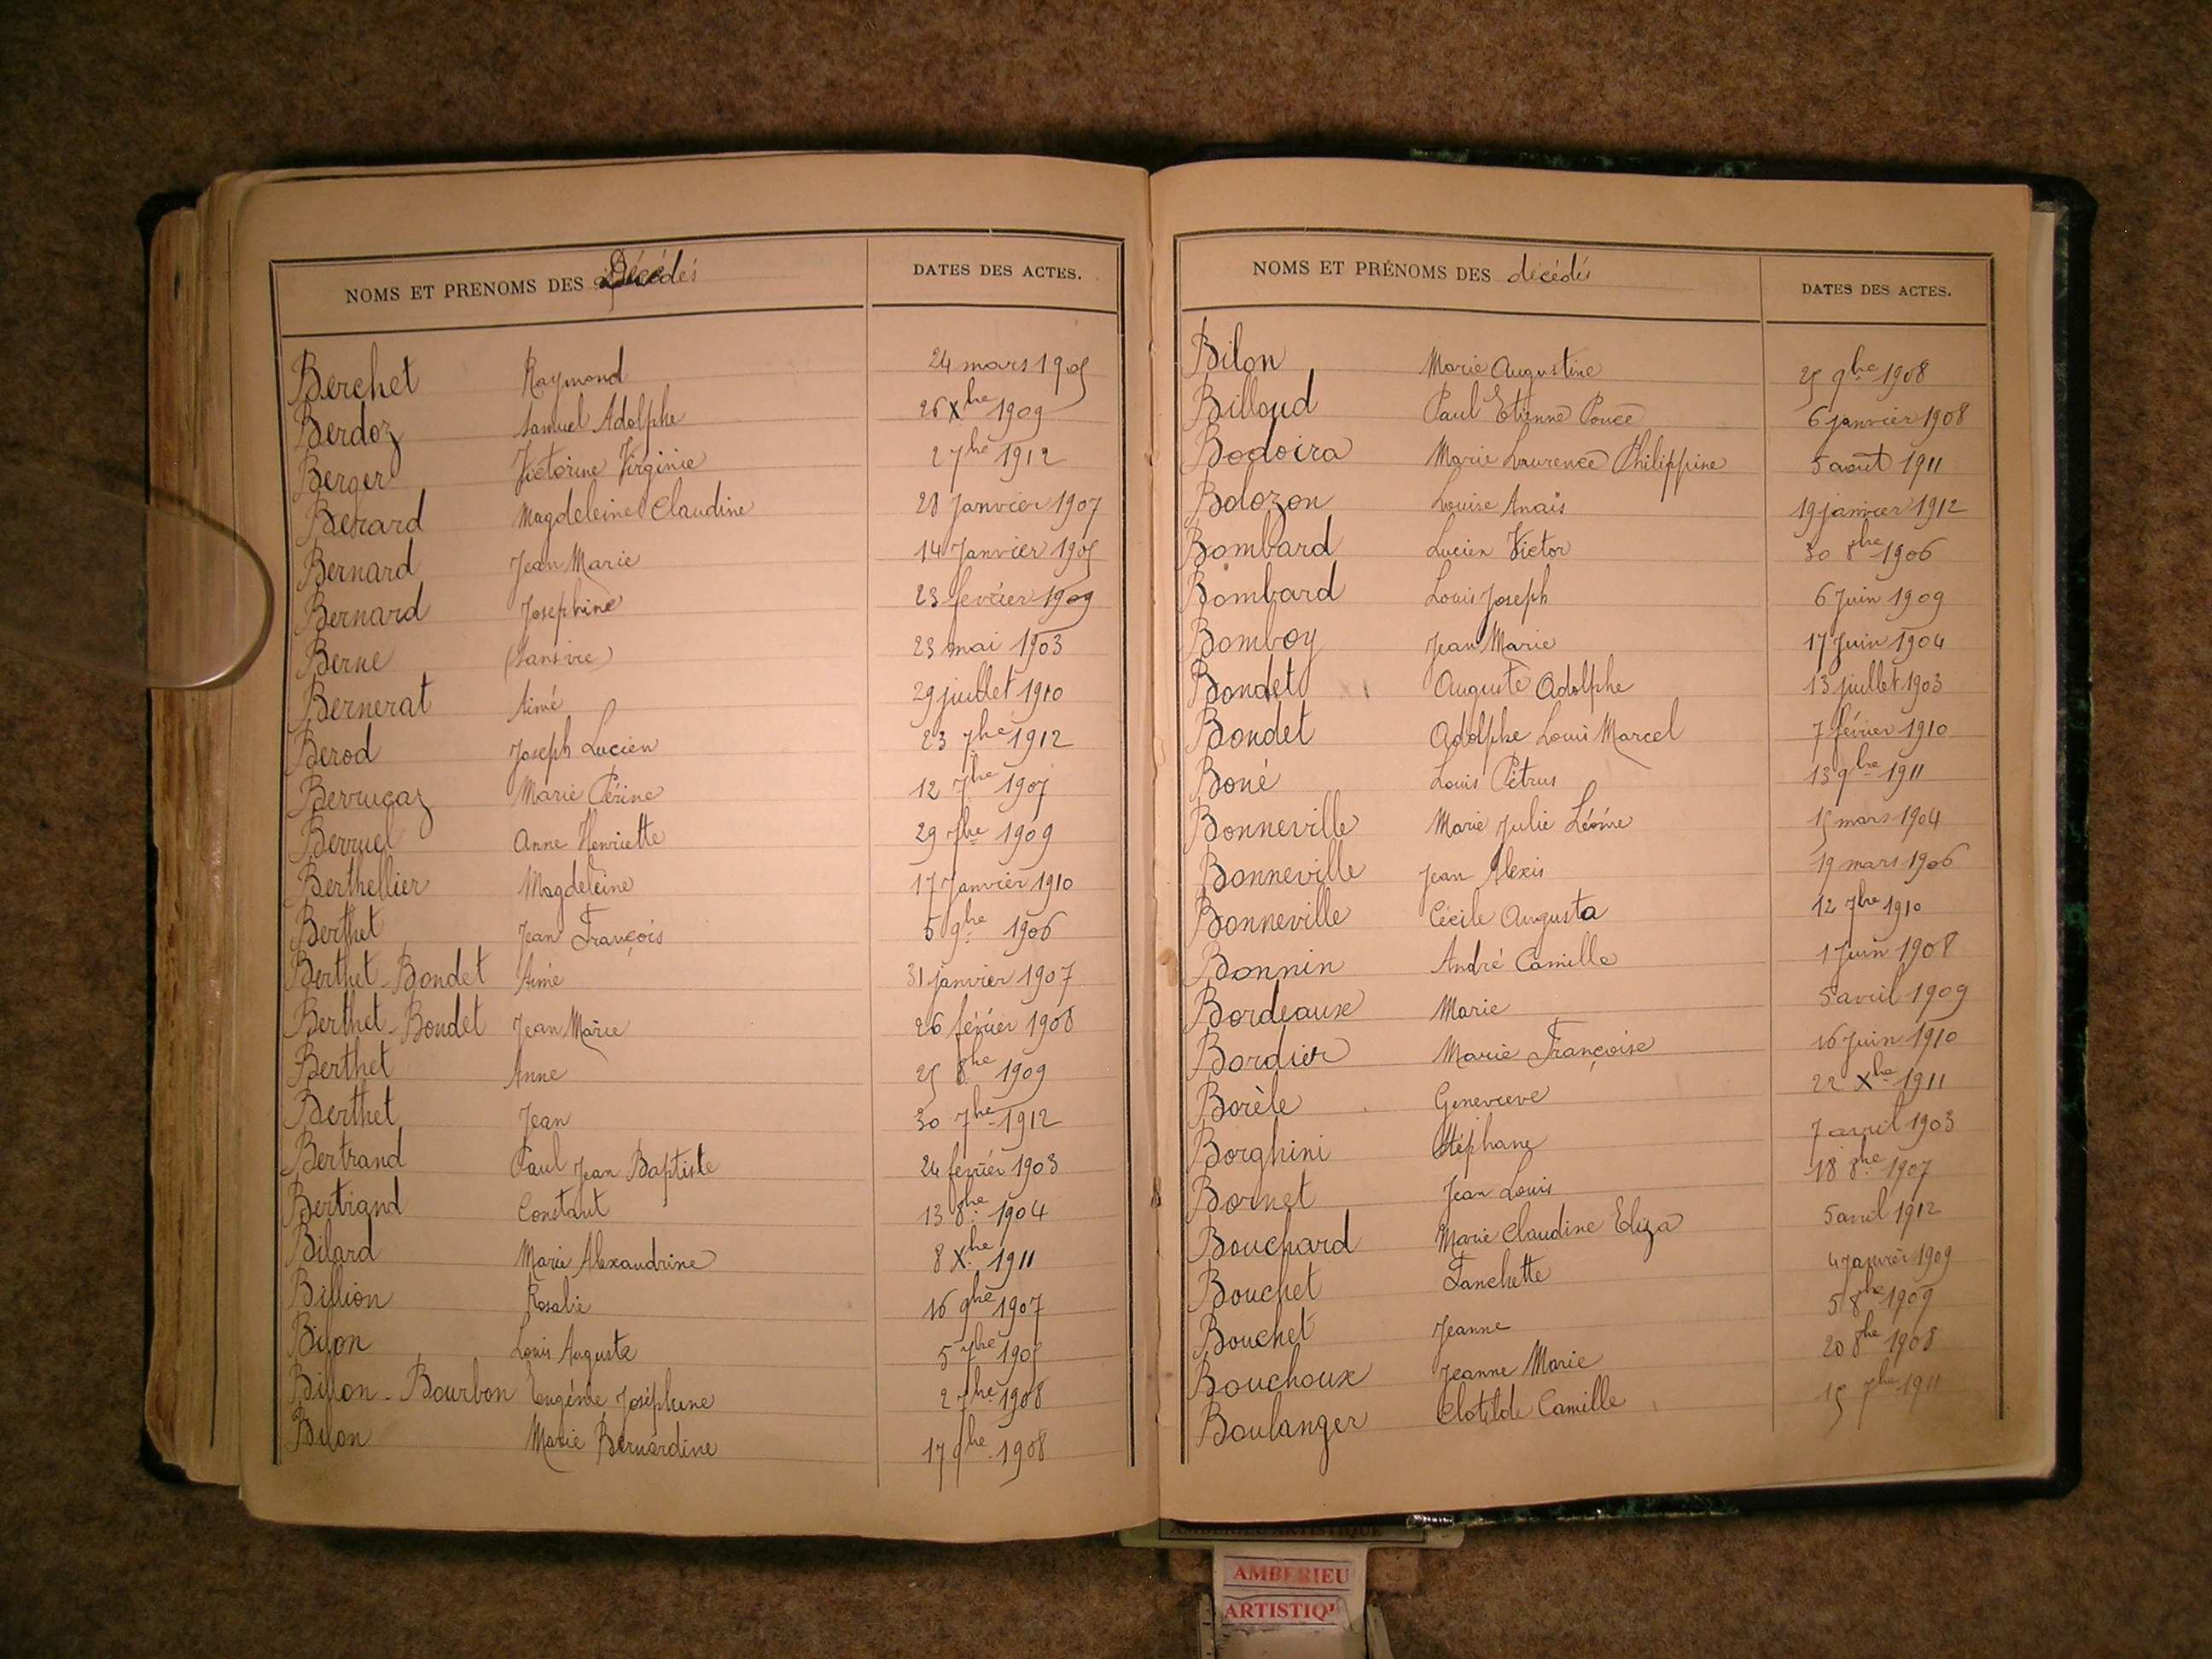 NOMS ET PRENOMS DES Décédés DATES DES ACTES.
Berchet Raymond 24 mars 1905
Berdoz Samuel Adolphe 26 Xbre 1909
Berger Victorine Virginie 2 7bre 1912
Berard Magdeleine Claudine 28 Janvier 1907
Bernard Jean Marie 14 Janvier 1905
Bernard Josephine 23 fevrier 1909
Berne (sans vie) 23 mai 1903
Bernerat Aimé 29 juillet 1910
Berod Joseph Lucien 23 7bre 1912
Berrucaz Marie Périne 12 7bre 1907
Berruel Anne Henriette 29 7bre 1909
Berthellier Magdeleine 17 Janvier 1910
Berthet Jean François 5 9bre 1906
Berthet-Bondet Aimé 31 janvier 1907
Berthet-Bondet Jean Marie 26 février 1908
Berthet Anne 25 8bre 1909
Berthet Jean 30 7bre 1912
Bertrand Paul Jean Baptiste 24 fevrier 1903
Bertrand Constant 13 8bre 1904
Bilard Marie Alexandrine 8 Xbre 1911
Billion Rosalie 16 9bre 1907
Bilon Louis Augusta 5 7bre 1905
Billon-Bourbon Eugénie Joséphine 2 7bre 1908
Bilon Marie Bernardine 17 9bre 1908
NOMS ET PRÉNOMS DES décédés DATES DES ACTES.
Bilon Marie Augustine 25 9bre 1908
Billoud Paul Etienne Ponce 6 janvier 1908
Bodoira Marie Laurence Philippine 5 août 1911
Bolozon Louise Anaïs 19 janvier 1912
Bombard Lucien Victor 30 8bre 1906
Bombard Louis Joseph 6 Juin 1909
Bomboy Jean Marie 17 Juin 1904
Bondet Auguste Adolphe 13 juillet 1903
Bondet Adolphe Louis Marcel 7 février 1910
Boné Louis Pétrus 13 9bre 1911
Bonneville Marie Julie Léonie 15 mars 1904
Bonneville Jean Alexis 19 mars 1906
Bonneville Cécile Augusta 12 7bre 1910
Bonnin André Camille 1 Juin 1908
Bordeaux Marie 5 avril 1909
Bordier Marie Françoise 16 Juin 1910
Borèle Genevieve 22 Xbre 1911
Borghini Stéphane 7 avril 1903
Bornet Jean Louis 18 8bre 1907
Bouchard Marie Claudine Eliza 5 avril 1912
Bouchet Fanchette 4 Janvier 1909
Bouchet Jeanne 5 8bre 1909
Bouchoux Jeanne Marie 20 8bre 1908
Boulanger Clotilde Camille 15 7bre 1911
AMBERIEU ARTISTIQUE
AMBERIEU
ARTISTIQU